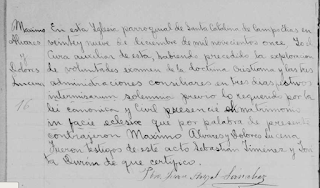 Maximo
Alvares
y
Dolores
Lucena
16
En esta Iglesia parroquial de Santa Catalina de Campollas en
veintey nueve de diciembre de mil novecientos once Yo el
Cura auxiliar de esta, habiendo precedido la exploracion
de voluntades examen de la doctrina Cristiana y las tres
administraciones conciliares en tres dias festivos
intermisarum solemnia, previo lo requerido por la
ley canonica y civil presencié el matrimonio
in facie eclesie que por palabra de presente
contrageron Maximo Alvares y Dolores Lucena
fueron testigos de este acto Sebastian Jimenez y
de que certifico.
Pbro. Angel Sanchez